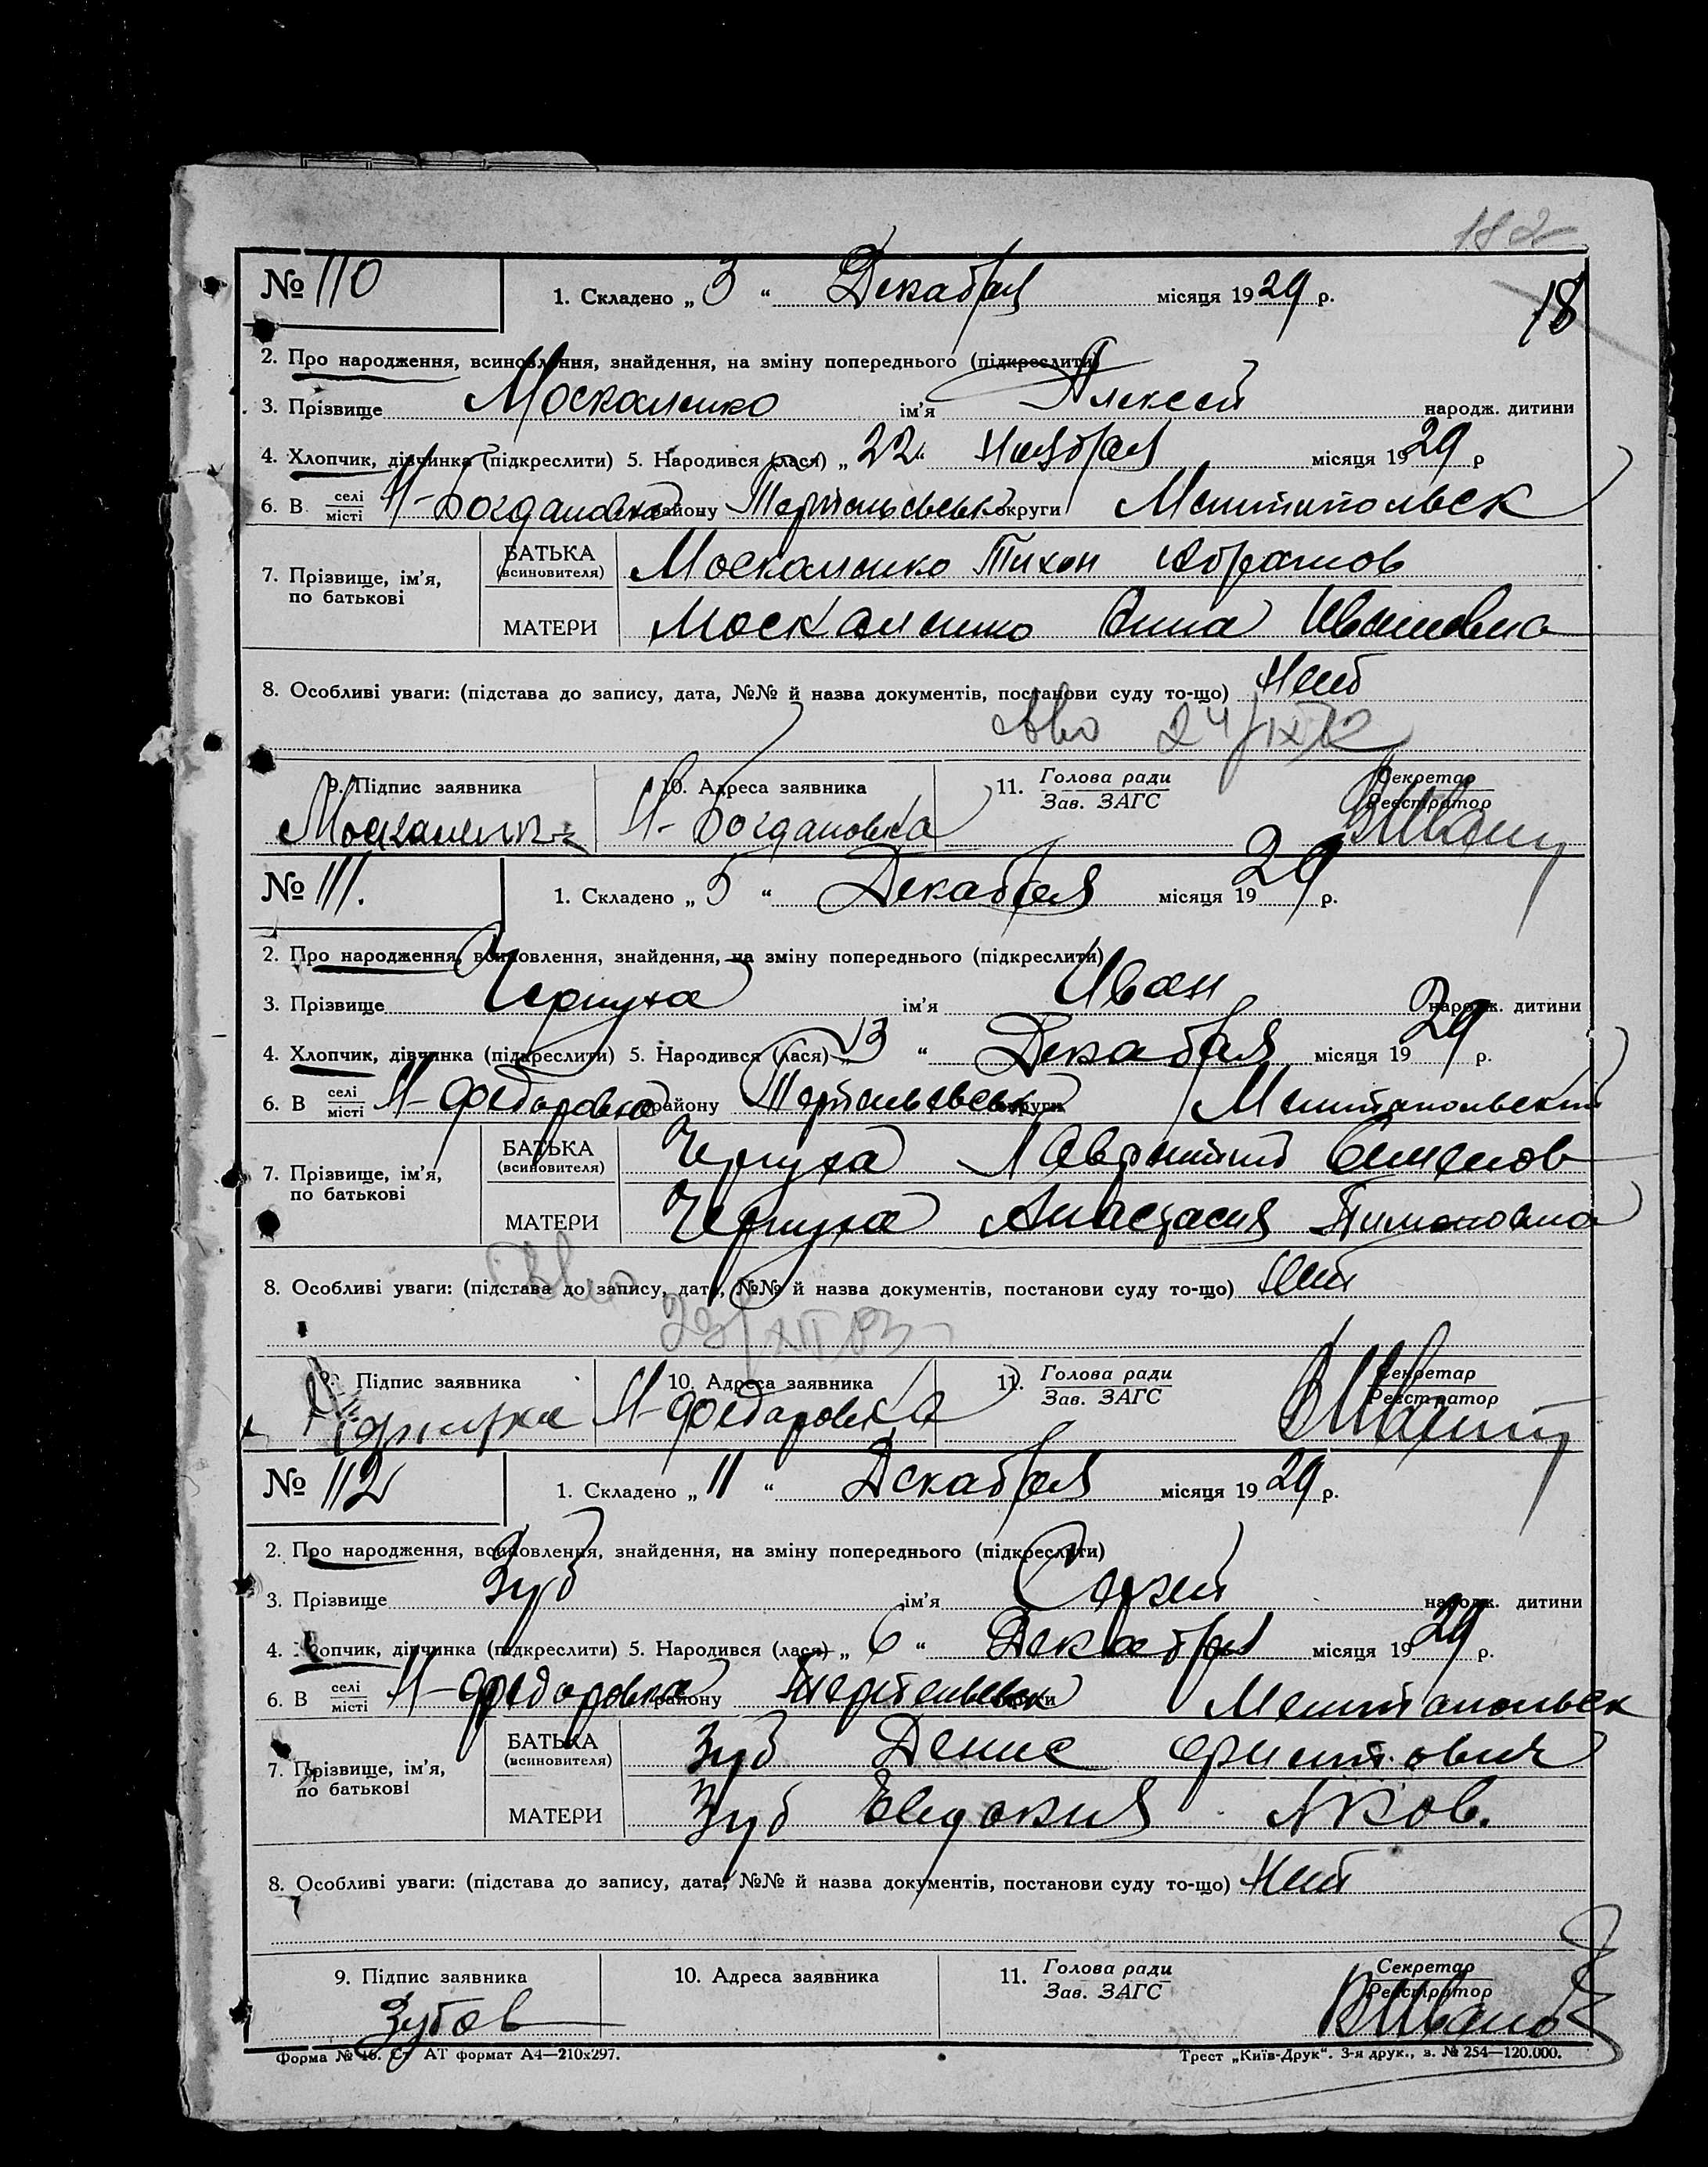 182
18
№ 110
1. Складено „ 3 “ Декабря місяця 1929 р.
2. Про народження, всиновлення, знайдення, на зміну попереднього (підкреслити)
3. Прізвище Москаленко ім’я Алексей народж. дитини
4. Хлопчик, дівчинка (підкреслити) 5. Народився (лася) „ 22 “ Ноября місяця 1929 р
6. В селі/місті Н-Богдановка району округи Мелитопольск
7. Прізвище, ім’я, по батькові
БАТЬКА (всиновителя) Москаленко Тихон Абрамов
МАТЕРИ Москаленко Анна Ивановна
8. Особливі уваги: (підстава до запису, дата, №№ й назва документів, постанови суду то-що) Нет
24/IX
9. Підпис заявника 10. Адреса заявника 11. Голова ради Секретар
Зав. ЗАГС Реєстратор
Н-Богдановка
№ 111.
1. Складено „ 5 “ Декабря місяця 1929 р.
2. Про народження, всиновлення, знайдення, на зміну попереднього (підкреслити)
3. Прізвище Чернуха ім’я Иван народж. дитини
4. Хлопчик, дівчинка (підкреслити) 5. Народився (лася) „ 3 “ Декабря місяця 1929 р.
6. В селі/місті Н-Федоровка району округи Мелитопольский
7. Прізвище, ім’я, по батькові
БАТЬКА (всиновителя) Чернуха Лаврентий Семенов
МАТЕРИ Чернуха Анастасия Тимоновна
8. Особливі уваги: (підстава до запису, дата, №№ й назва документів, постанови суду то-що) Нет
9. Підпис заявника 10. Адреса заявника 11. Голова ради Секретар
Зав. ЗАГС Реєстратор
Н-Федоровка
№ 112
1. Складено „ 11 “ Декабря місяця 1929 р.
2. Про народження, всиновлення, знайдення, на зміну попереднього (підкреслити)
3. Прізвище Зуб ім’я Сергей народж. дитини
4. Хлопчик, дівчинка (підкреслити) 5. Народився (лася) „ 6 “ Декабря місяця 1929 р.
6. В селі/місті Н-Федоровка району округи Мелитопольск
7. Прізвище, ім’я, по батькові
БАТЬКА (всиновителя) Зуб Денис
МАТЕРИ Зуб Евдокия Яков.
8. Особливі уваги: (підстава до запису, дата, №№ й назва документів, постанови суду то-що) Нет
9. Підпис заявника 10. Адреса заявника 11. Голова ради Секретар
Зав. ЗАГС Реєстратор
Зубов
Форма № 16. Ст АТ формат А4—210х297. Трест „Київ-Друк“. 3-я друк., з. № 254—120.000.